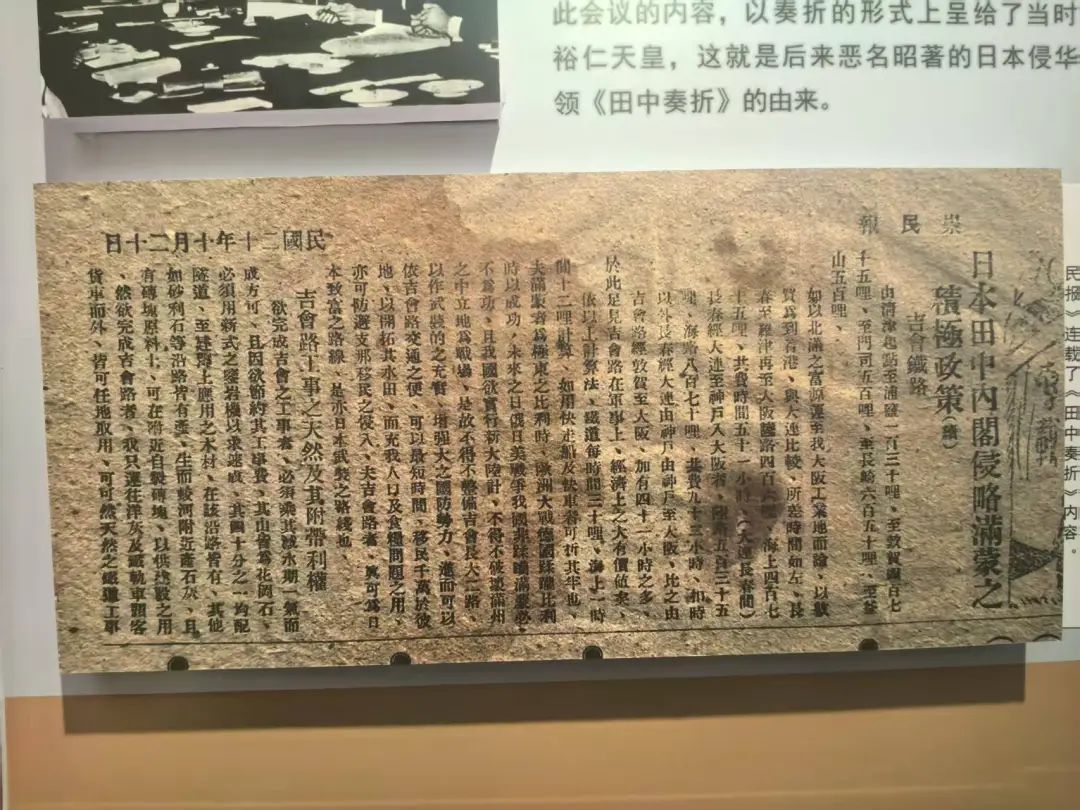 此会议的内容，以奏折的形式上呈给了当时
裕仁天皇，这就是后来恶名昭著的日本侵华
领《田中奏折》的由来。
民报》连载了《田中奏折》内容。
民國二十年十月二十日
崇民報
日本田中內閣侵略滿蒙之
積極政策(續)
吉會鐵路
由清津起點至浦鹽一百三十哩、至敦賀四百七
十五哩、至門司五百哩、至長崎六百五十哩、至釜
山五百哩、
如以北滿之富源運至我大阪工業地而論、以敦
賀為到着港、與大連比較、所差時間如左、長
春至羅津再至大阪陸路四百六哩、海上四百七
十五哩、共費時間五十一小時、(大連長春間)
長春經大連至神戶入大阪者、陸路五百三十五
哩、海路八百七十哩、共費九十二小時、扣時
以外長春經大連由神戶至大阪、比之由
吉會路經敦賀至大阪、加有四十一小時之多、
於此足見吉會路在軍事上、經濟上之大有價值矣、
依以上計算法、鐵道每時間三十哩、海上一時
間十二哩計算、如用快走船及快車者可折其半也、
夫滿蒙者為極東之比利時、歐洲大戰德國蹂躪比利
時以成功、未來之日俄日美戰爭我國非蹂躪滿蒙必
不為功、且我國欲實行新大陸計、不得不破壞滿州
之中立地為戰場、是故不得不整備吉會長大二路、
以作武裝的之充實、增強大之國防勢力、進而可以
依吉會路交通之便、可以最短時間、移民千萬於彼
地、以開拓其水田、而充我人口及食糧問題之用、
亦可防避支那移民之侵入、夫吉會路者、真可為日
本致富之路線、是亦日本武裝之路綫也、
吉會路工事之天然及其附帶利權
欲完成吉會之工事者、必須乘其減水期一氣而
成方可、且因欲節約其工事費、其山嶺為花岡石、
必須用新式之鑿岩機以求速成、其國十分之一均配
隧道、至建築上應用之木材、在該沿路皆有、其他
如砂利石等沿路皆有產、生而蛟河附近產石灰、且
有磚塊原料土、可在附近自製磚塊、以供建設之用
、然欲完成吉會路者、我只運往洋灰及鐵軌車頭客
貨車而外、皆可任地取用、可可然天然之鐵道工事